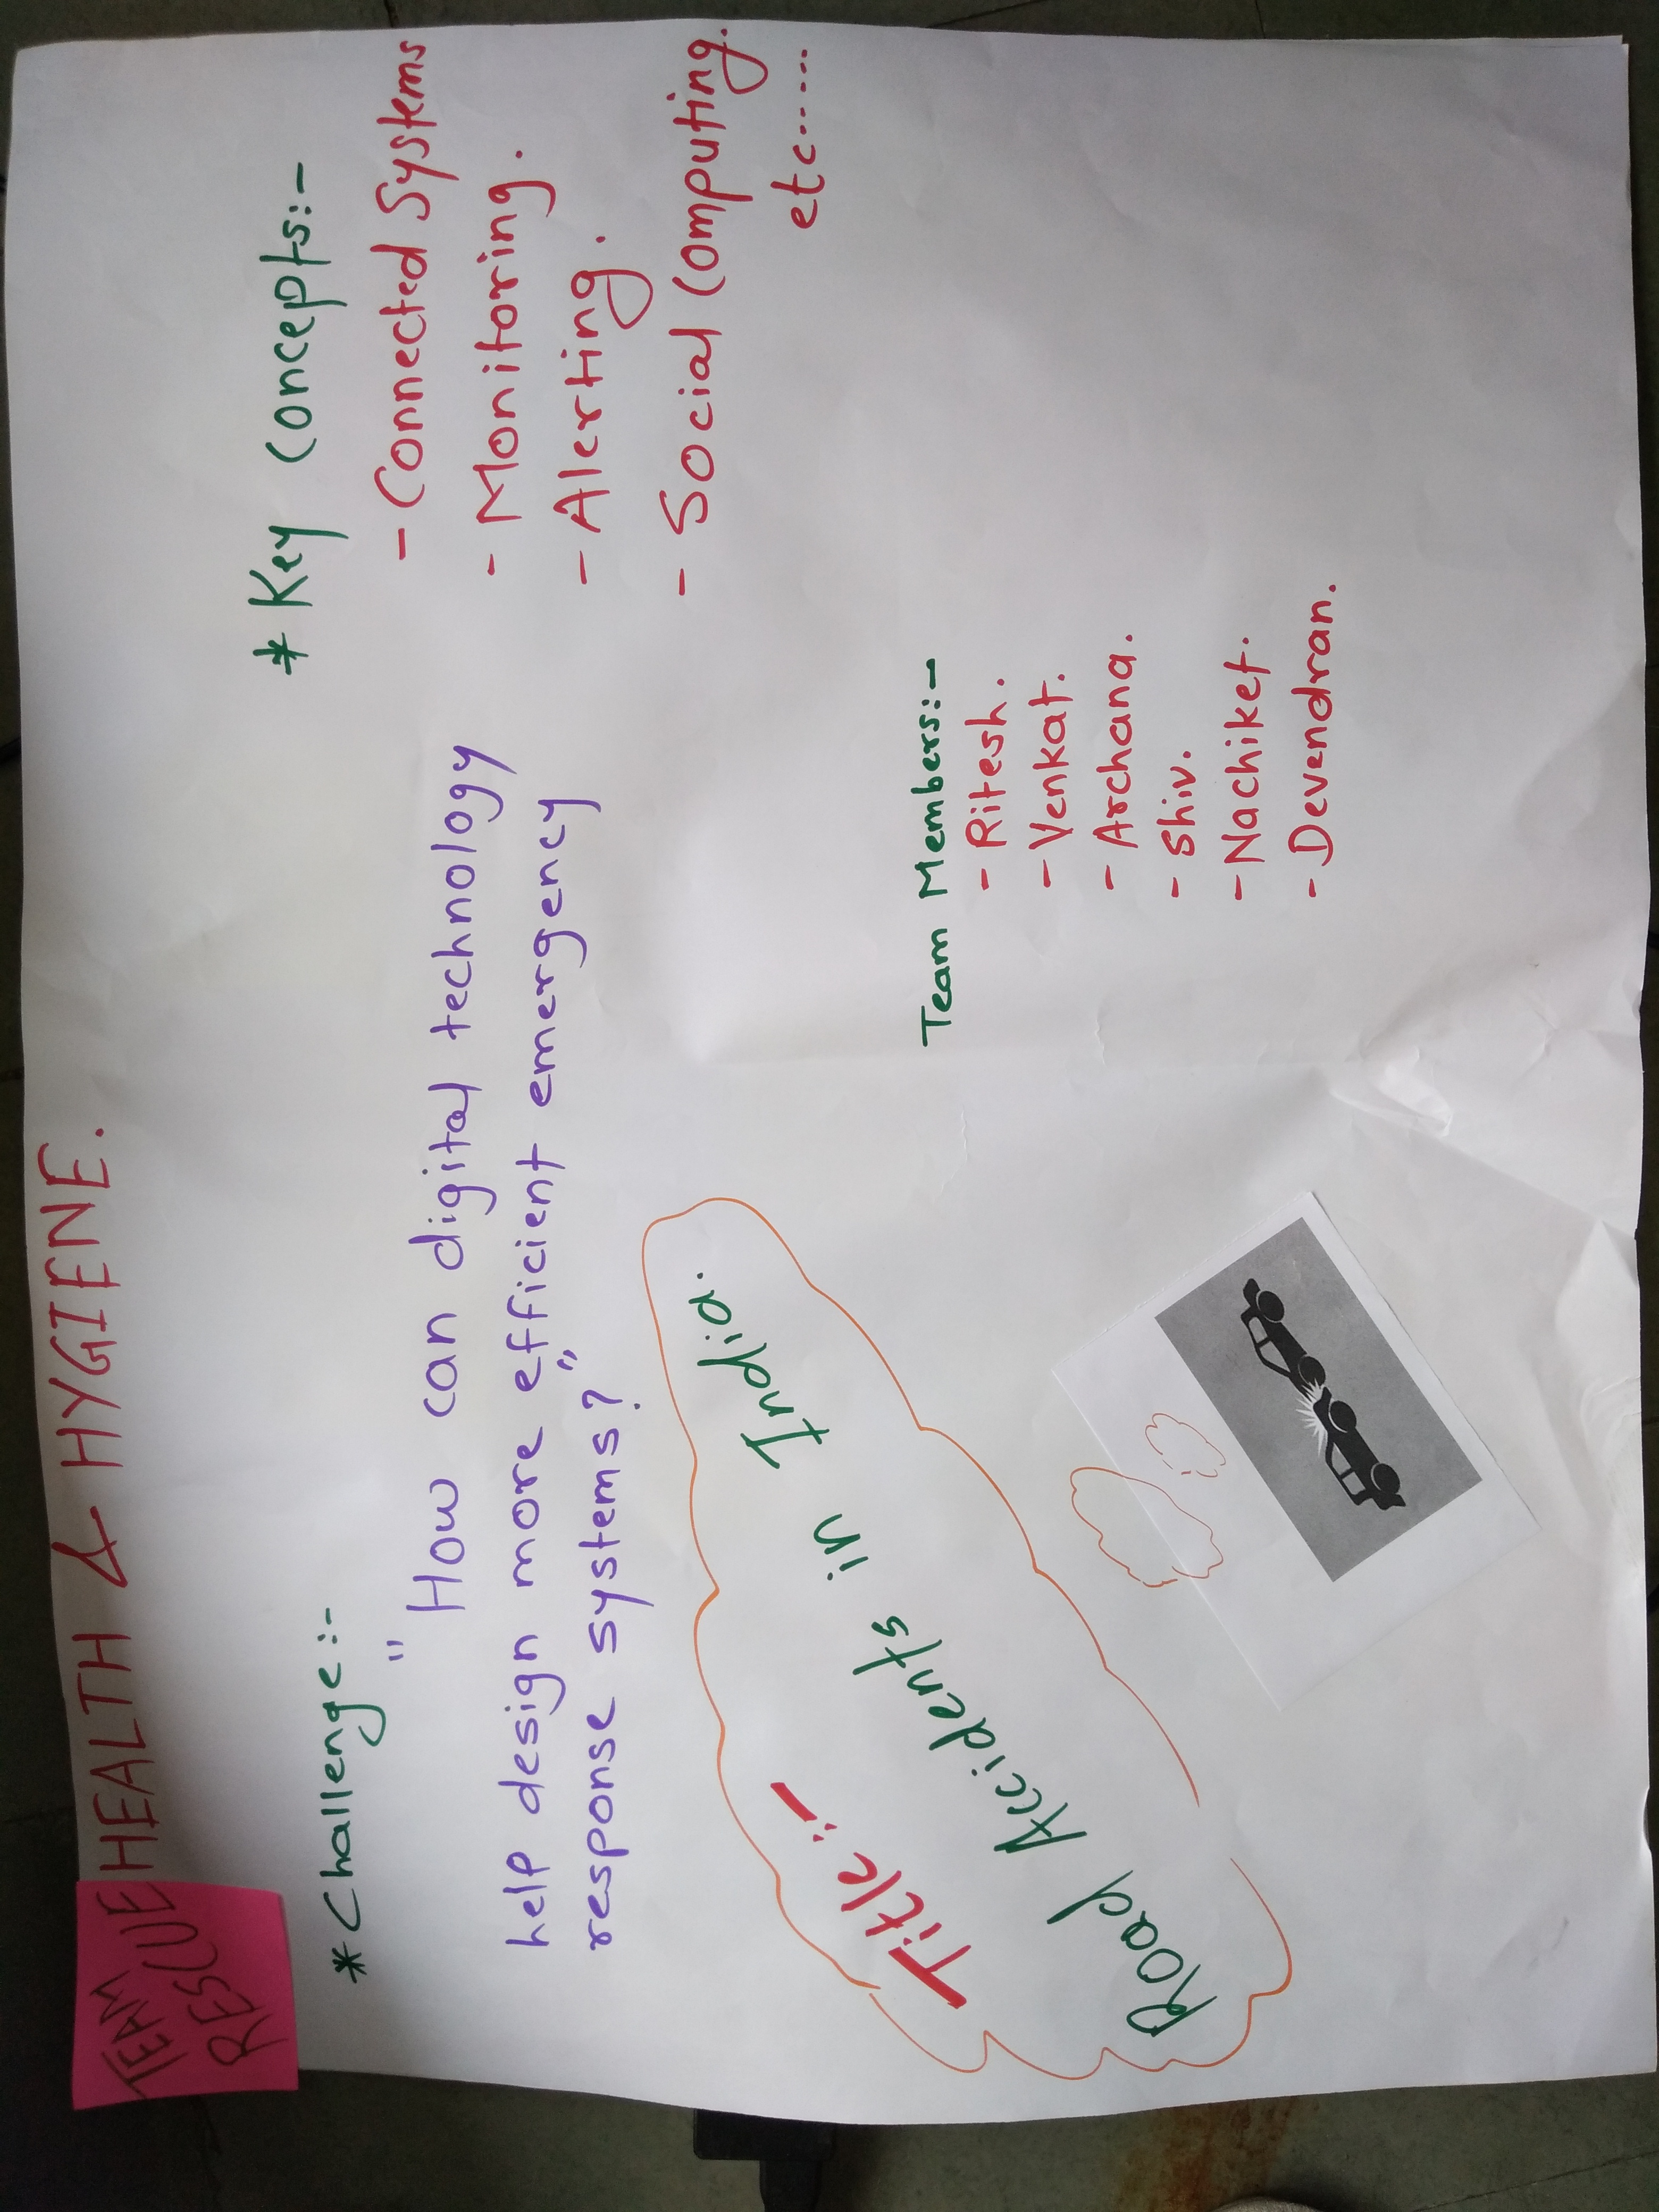 TEAM
RESCUE
HEALTH & HYGIENE.
* Challenge:-
" How can digital technology
help design more efficient emergency
response systems? "
Title:-
Road Accidents in India.
* Key Concepts:-
- Connected Systems
- Monitoring.
- Alerting.
- Social Computing.
etc.....
Team Members:-
- Ritesh.
- Venkat.
- Archana.
- Shiv.
- Nachiket.
- Devendran.